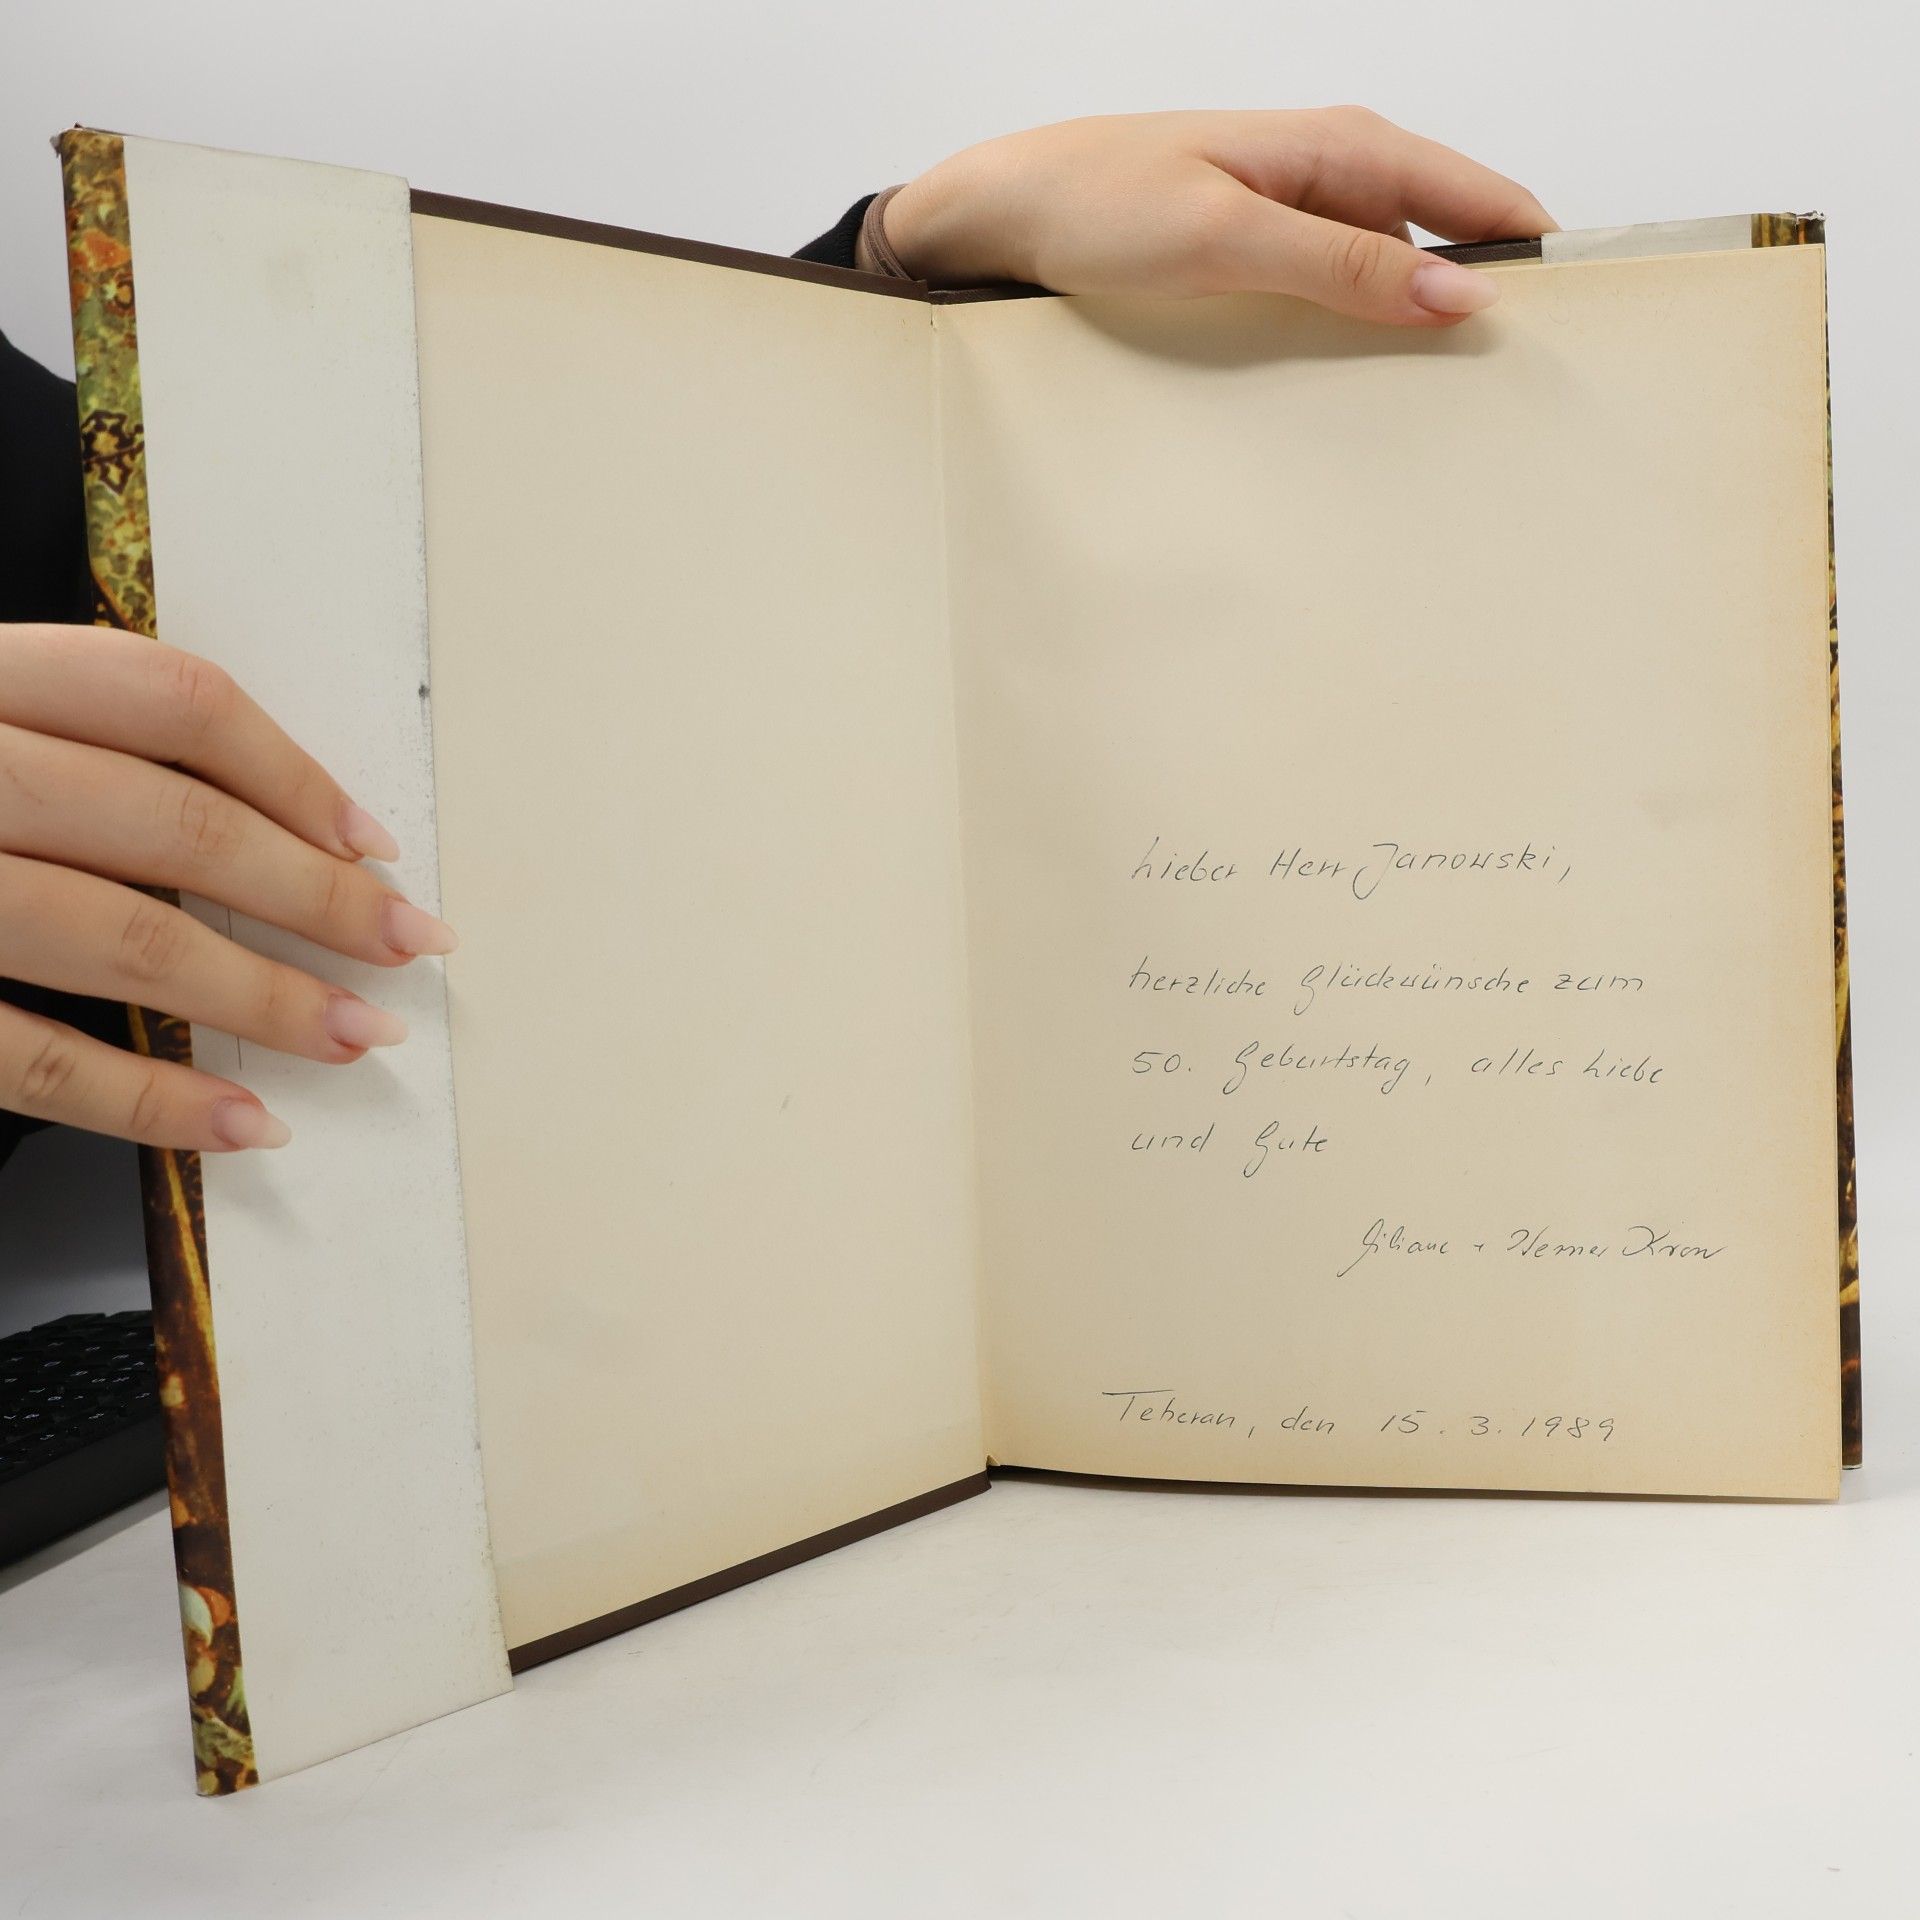 Lieber Herr Janowski,
herzliche Glückwünsche zum
50. Geburtstag, alles Liebe
und Gute
+ Werner Kron
Teheran, den 15.3.1989